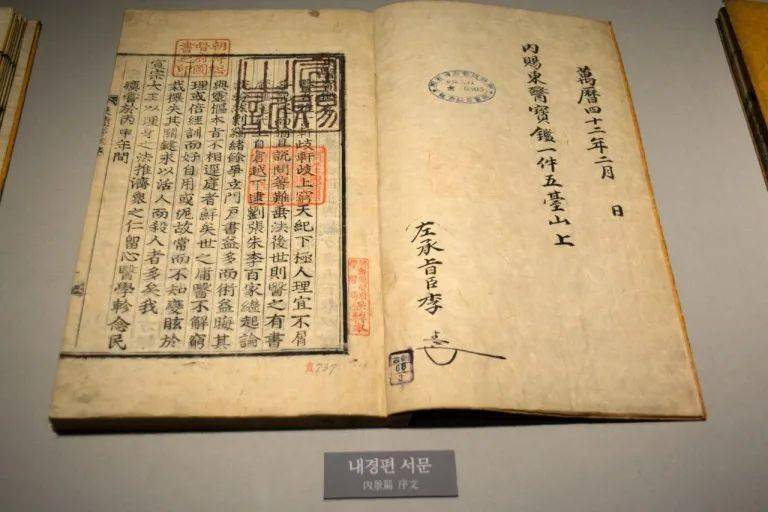 萬曆四十二年二月 日
內賜東醫寶鑑一件五臺山上
左承旨臣李
岐軒岐上窮天紀下極人理宜不屑
且說問著難垂法後世則醫之有書
自倉越下逮劉張朱李百家繼起論
剽竊緖餘爭立門戶書益多而術益晦其
與靈樞本旨不相逕庭者鮮矣世之庸醫不解窮
理或倍經訓而好自用或泥故常而不知變眩於
裁擇失其關鍵求以活人而殺人者多矣我
宣宗大王以理身之法推濟衆之仁留心醫學軫念民
瘼嘗於丙申年間
내경편 서문
內景篇 序文